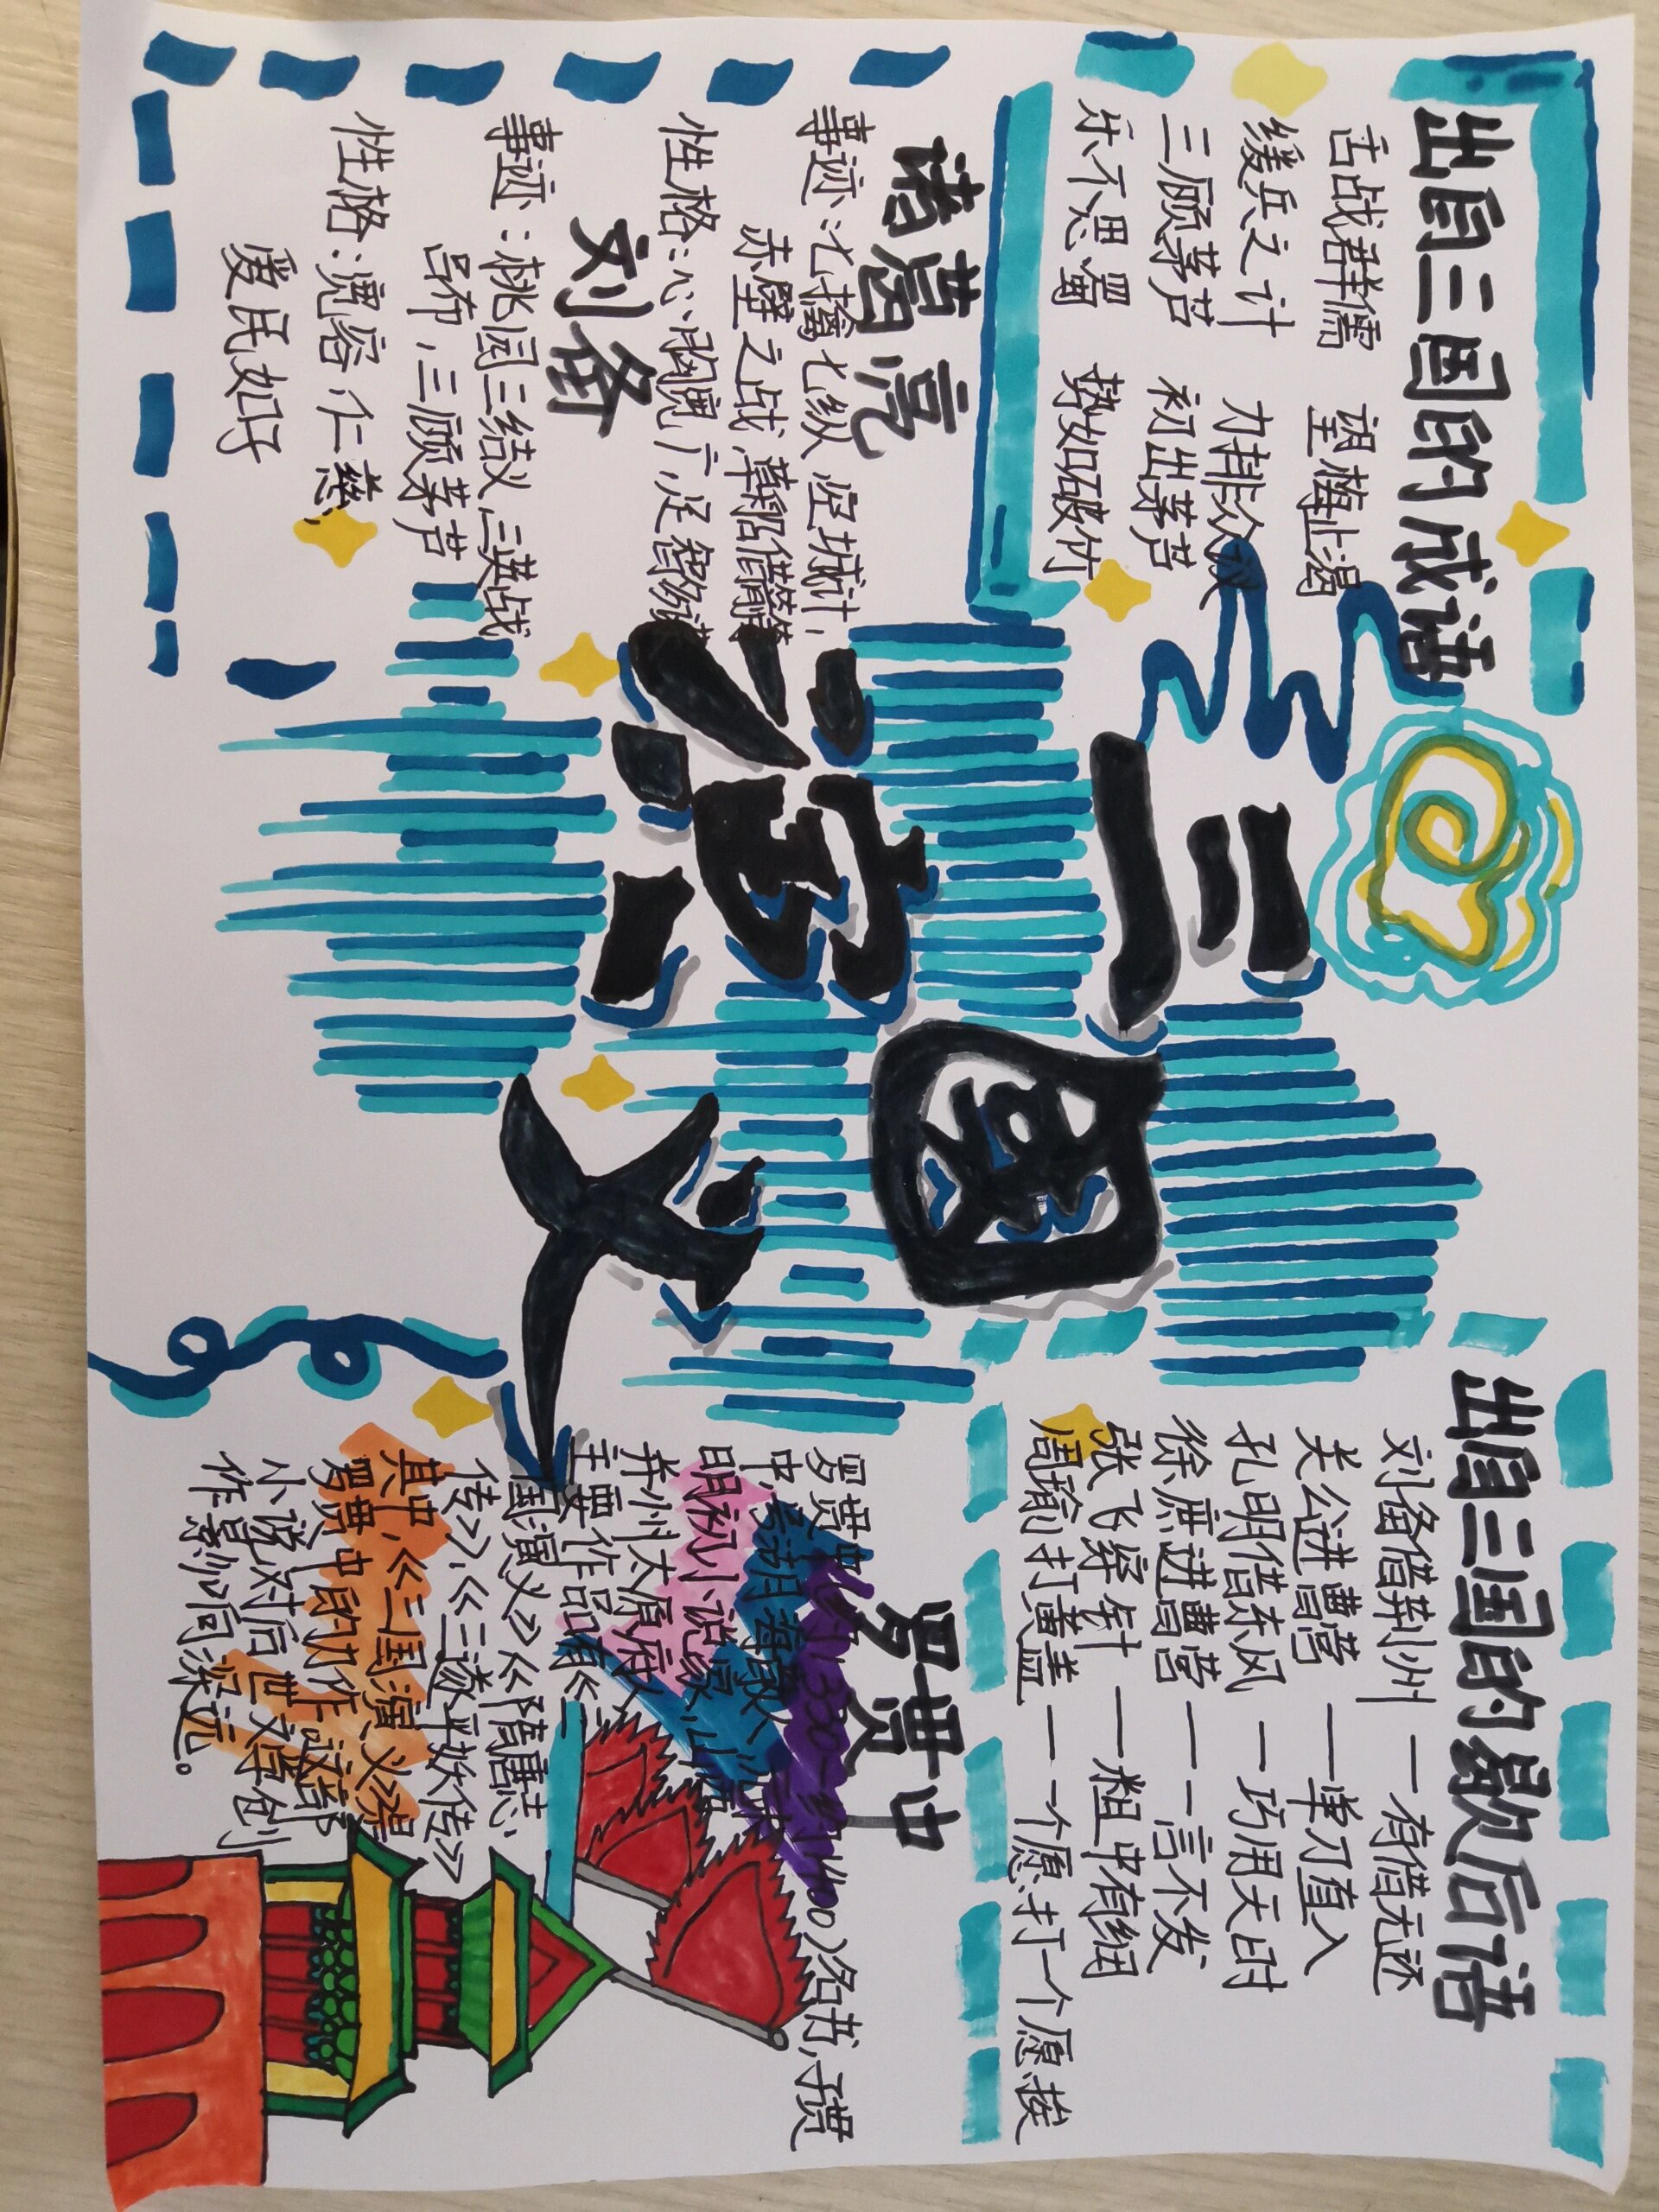 出自三国的成语
舌战群儒 望梅止渴
缓兵之计 力排众议
三顾茅芦 初出茅芦
乐不思蜀 势如破竹
诸葛亮
事迹：七擒七纵，空城计，
赤壁之战，草船借箭等
性格：心胸宽广，足智多谋
刘备
事迹：桃园三结义，三英战
吕布，三顾茅芦
性格：宽容，仁慈，
爱民如子
三国
演义
出自三国的歇后语
刘备借荆州——有借无还
关公进曹营——单刀直入
孔明借东风——巧用天时
徐庶进曹营——一言不发
张飞穿针——粗中有细
周瑜打黄盖——一个愿打一个愿挨
罗贯中
罗贯中(约1330-约1400)名本，字贯
中，号湖海散人，山东
明初小说家，山西
并州太原府人
主要作品有《三
国演义》《隋唐志
传》、《三遂平妖传》
其中，《三国演义》是
罗贯中的力作，这部
小说对后世文学创
作影响深远。